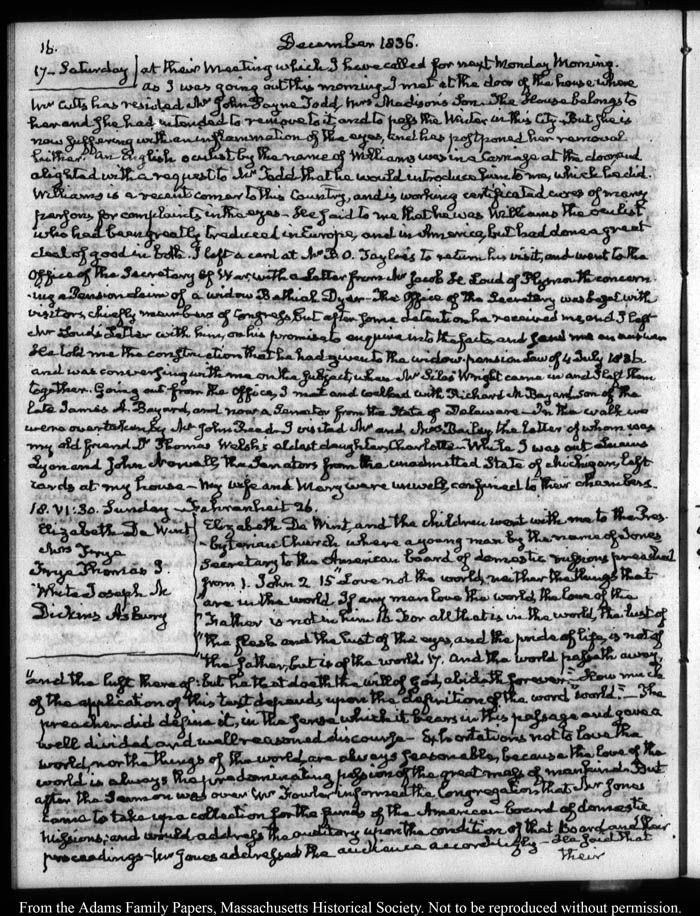 16.
December 1836.
17- Saturday at their Meeting which I have called for next Monday Morning.
as I was going out this morning, I met at the door of the house where
Mrs Cutts has resided Mr John Payne Todd, Mrs Madison's Son. The House belongs to
her and she had intended to remove to it, and to pass the Winter in this City. But she is
now suffering with an inflammation of the eyes, and has postponed her removal
hither. An English oculist by the name of Williams was in a Carriage at the door and
alighted with a request to Mr Todd that he would introduce him to me, which he did.
Williams is a recent comer to this Country, and is working certificated cures of many
persons for complaints in the eyes - He said to me that he was Williams the oculist
who had been greatly traduced in Europe, and in America, but had done a great
deal of good in both. I left a card at Mr B. O. Tayloe's to return his visit, and went to the
Office of the Secretary of War, with a Letter from Mr Jacob H. Loud of Plymouth concern-
ing a Pension claim of a widow Bethiah Dyer - The Office of the Secretary was beset with
visitors, chiefly members of Congress, but after some detention he received me, and I left
Mr Loud's Letter with him, on his promise to enquire into the facts, and send me an answer
He told me the construction that he had given to the widow pension Law of 4 July 1836
and was conversing with me on the subject, when Mr Silas Wright came in and I left them
together. Going out from the Office, I met and walked with Richard H. Bayard, son of the
late James A. Bayard, and now a Senator from the State of Delaware - In the walk we
were overtaken by Mr John Reed. I visited Mr and Mrs Bailey, the latter of whom was
my old friend Dr Thomas Welsh's eldest daughter, Charlotte - While I was out Lucius
Lyon and John Norvell, the Senators from the unadmitted State of Michigan, left
cards at my house - My wife and Mary were unwell, confined to their chambers.
18. VI:30. Sunday - Fahrenheit 26.
Elizabeth De Wint
Miss Frye
Frye Thomas I.
White Joseph M
Dickins Asbury
Elizabeth De Wint, and the children went with me to the Pres-
-byterian Church where a young man by the name of Jones
Secretary to the American board of domestic missions preached
from 1. John 2 15 Love not the world, neither the things that
"are in the world. If any man love the world, the love of the
"Father is not in him 16 For all that is in the world, the lust of
"the flesh and the lust of the eyes, and the pride of life, is not of
"the father, but is of the world. 17. And the world passeth away,
"and the lust thereof: but he that doeth the will of God, abideth forever." How much
of the application of this text depends upon the definition of the word "world"- The
preacher did define it, in the sense which it bears in this passage and gave a
well divided and well reasoned discourse - Exhortations not to love the
world, nor the things of the world, are always seasonable, because the love of the
world is always the predominating passion of the great mass of mankind. But
after the Sermon was over Mr Fowler informed the Congregation that Mr Jones
came to take up a collection for the funds of the American board of domestic
Missions; and would address the auditory upon the condition of that Board and their
proceedings - Mr Jones addressed the audience accordingly - He said that
their
From the Adams Family Papers, Massachusetts Historical Society. Not to be reproduced without permission.